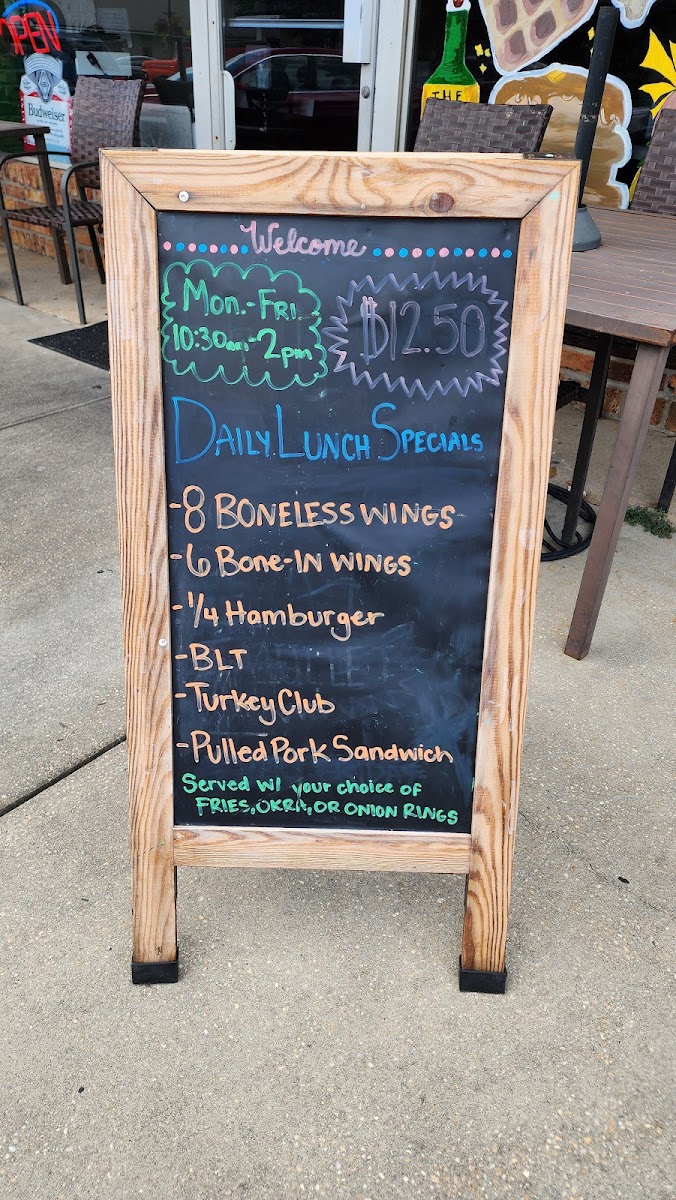 OPEN
Budweiser
THE
Welcome
Mon.-FRI.
10:30am-2pm
$12.50
DAILY LUNCH SPECIALS
-8 BONELESS WINGS
-6 Bone-IN WINGS
-1/4 Hamburger
-BLT
-Turkey Club
-Pulled Pork Sandwich
Served w/ your choice of
FRIES, OKRA, OR ONION RINGS